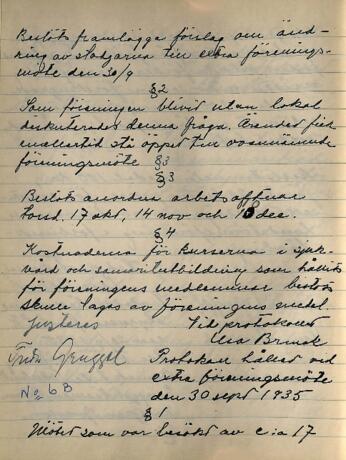 Beslöts framlägga förslag om änd-
ring av stadgarna till extra förenings-
möte den 30/9
§2
Som föreningen blivit utan lokal
diskuterades denna fråga. Ärendet fick
emellertid stå öppet till ovannämnde
föreningsmöte §3
§3
Beslöts anordna arbetsaftnar
torsd. 17 okt, 14 nov och 18 dec.
§4
Kostnaderna för kurserna i sjuk-
vård och samaritutbildning som hållits
för föreningens medlemmar beslöts
skulle tagas av föreningens medel.
Justeras Vid protokollet
Brunk
Protokoll hållet vid
No 6 B extra föreningsmöte
den 30 sept 1935
§1
Mötet som var besökt av c:a 17